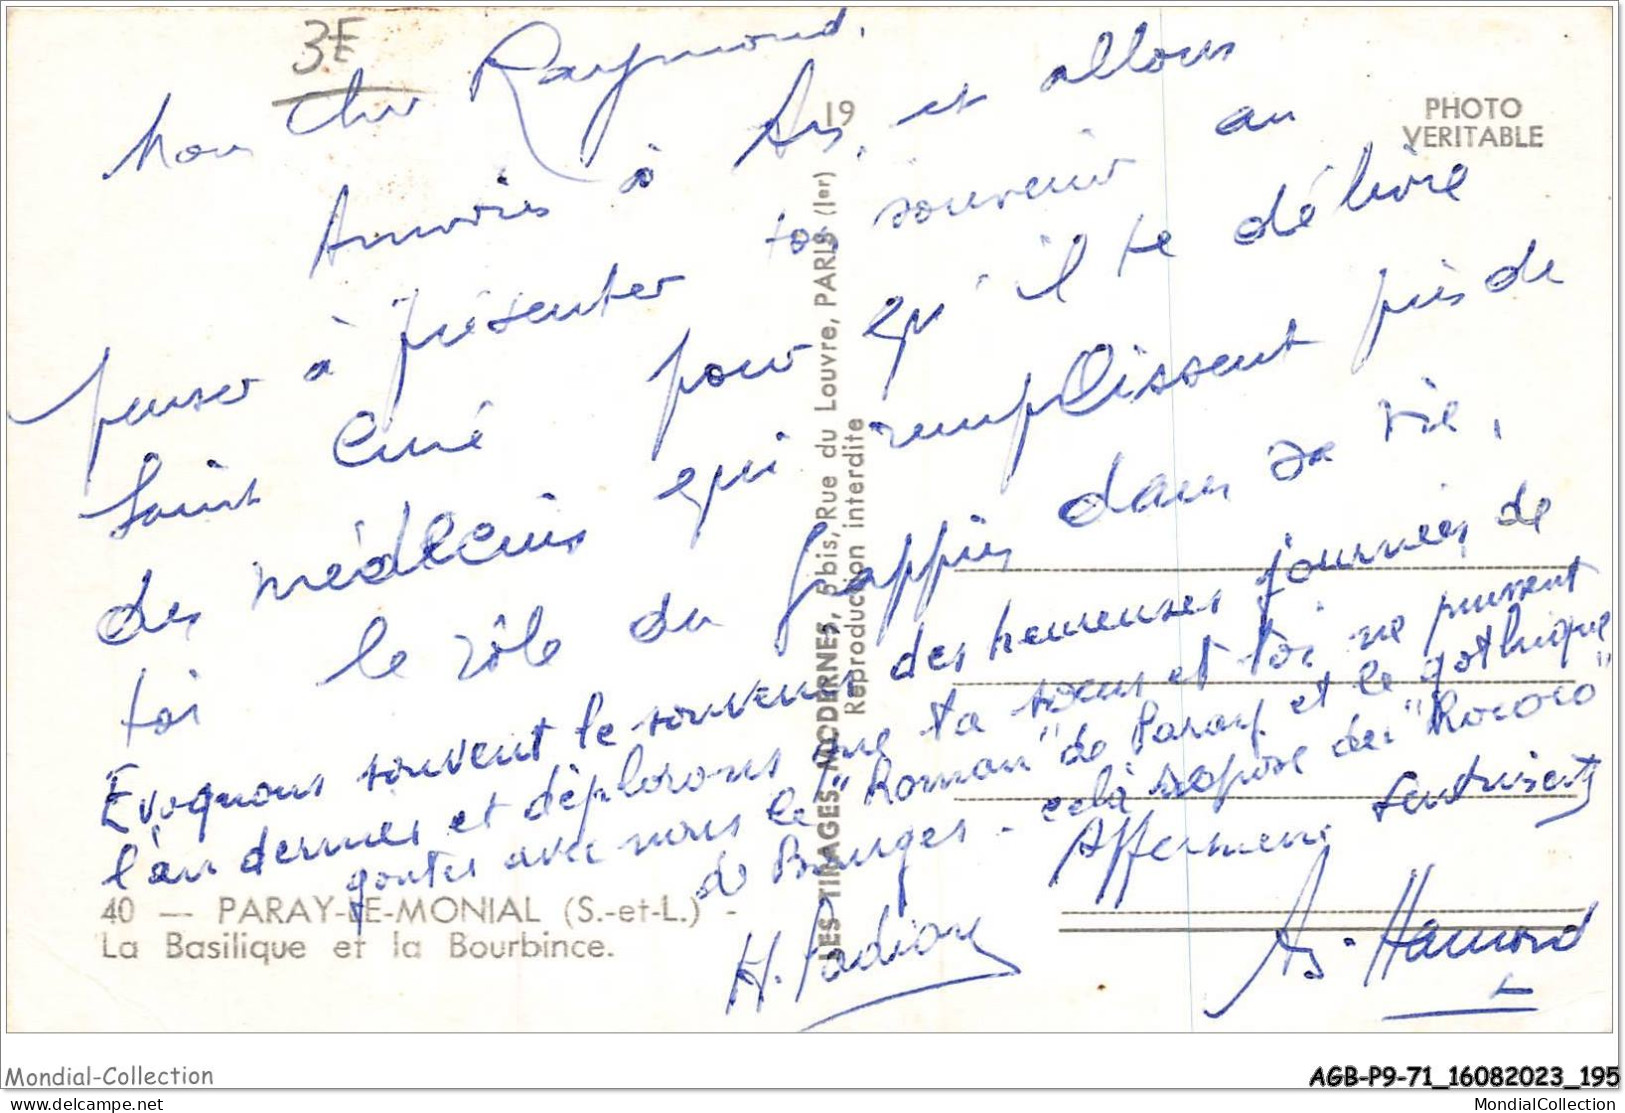 3E
Mon cher Raymond,
Arrivés à Ars, et allons
penser à présenter ton souvenir au
Saint Curé pour qu'il te délivre
des médecins qui remplissent près de
toi le rôle du grappin dans sa vie.
Evoquons souvent le souvenir des heureuses journées de
l'an dernier et déplorons que ta soeur et toi ne puissent
gouter avec nous le "Roman" de Paray et le gothique
de Bourges - celà repose du "Rococo"
Affectueux sentiments
H. Padioux
As. Hamond
19
PHOTO
VERITABLE
LES TIRAGES MODERNES, 5 bis, Rue du Louvre, PARIS (Ier)
Reproduction interdite
40 — PARAY-LE-MONIAL (S.-et-L.) -
La Basilique et la Bourbince.
Mondial-Collection
AGB-P9-71_16082023_195
delcampe.net
MondialCollection